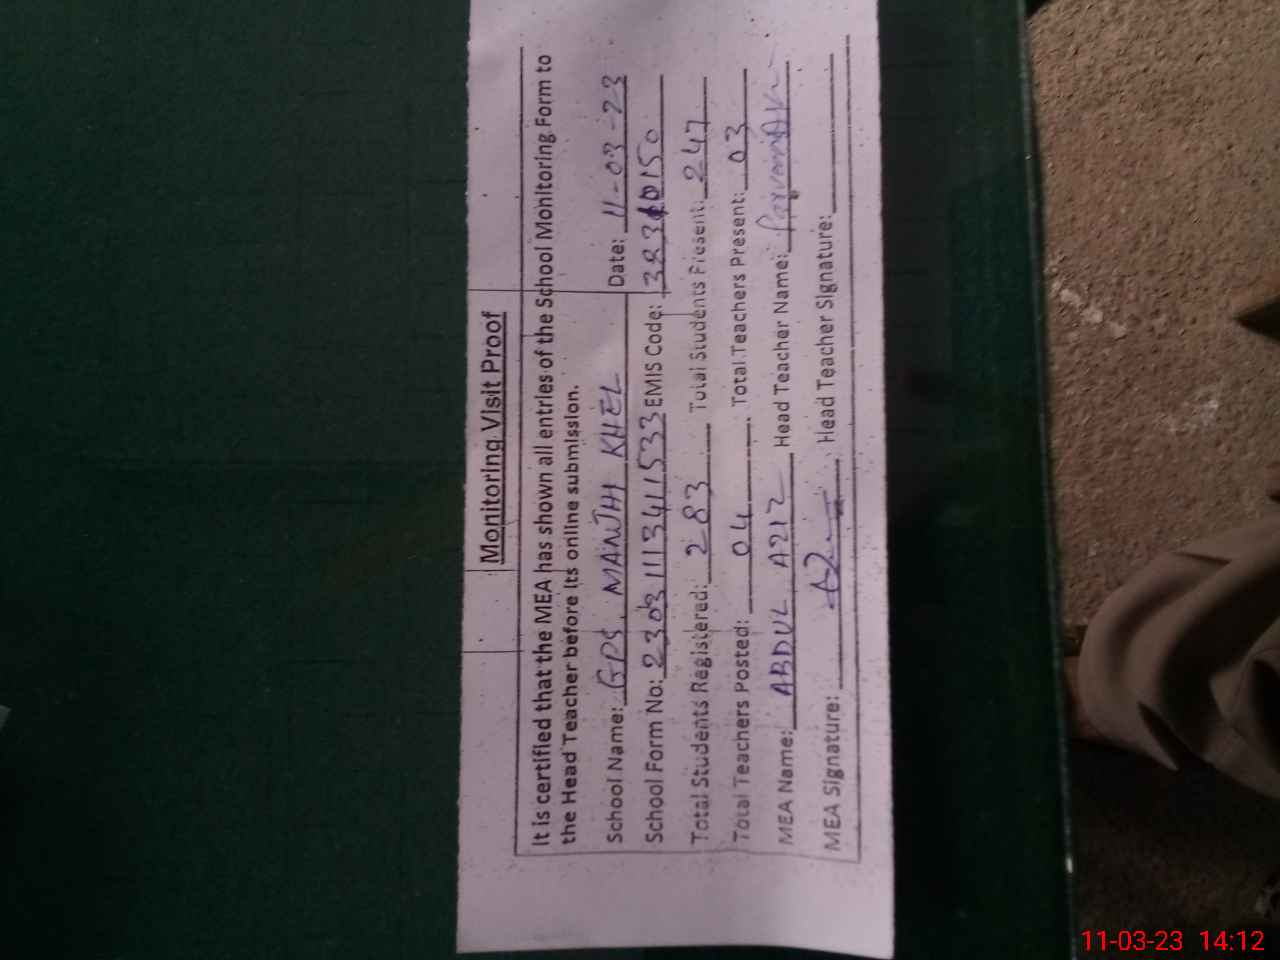 Monitoring Visit Proof
It is certified that the MEA has shown all entries of the School Monitoring Form to
the Head Teacher before its online submission.
School Name: GPS MANJHI KHEL Date: 11-03-23
School Form No: 23031113411533 EMIS Code:
Total Students Registered: 283 Total Students Present: 247
Total Teachers Posted: 04 Total Teachers Present: 03
MEA Name: ABDUL AZIZ Head Teacher Name:
MEA Signature: Head Teacher Signature:
11-03-23 14:12